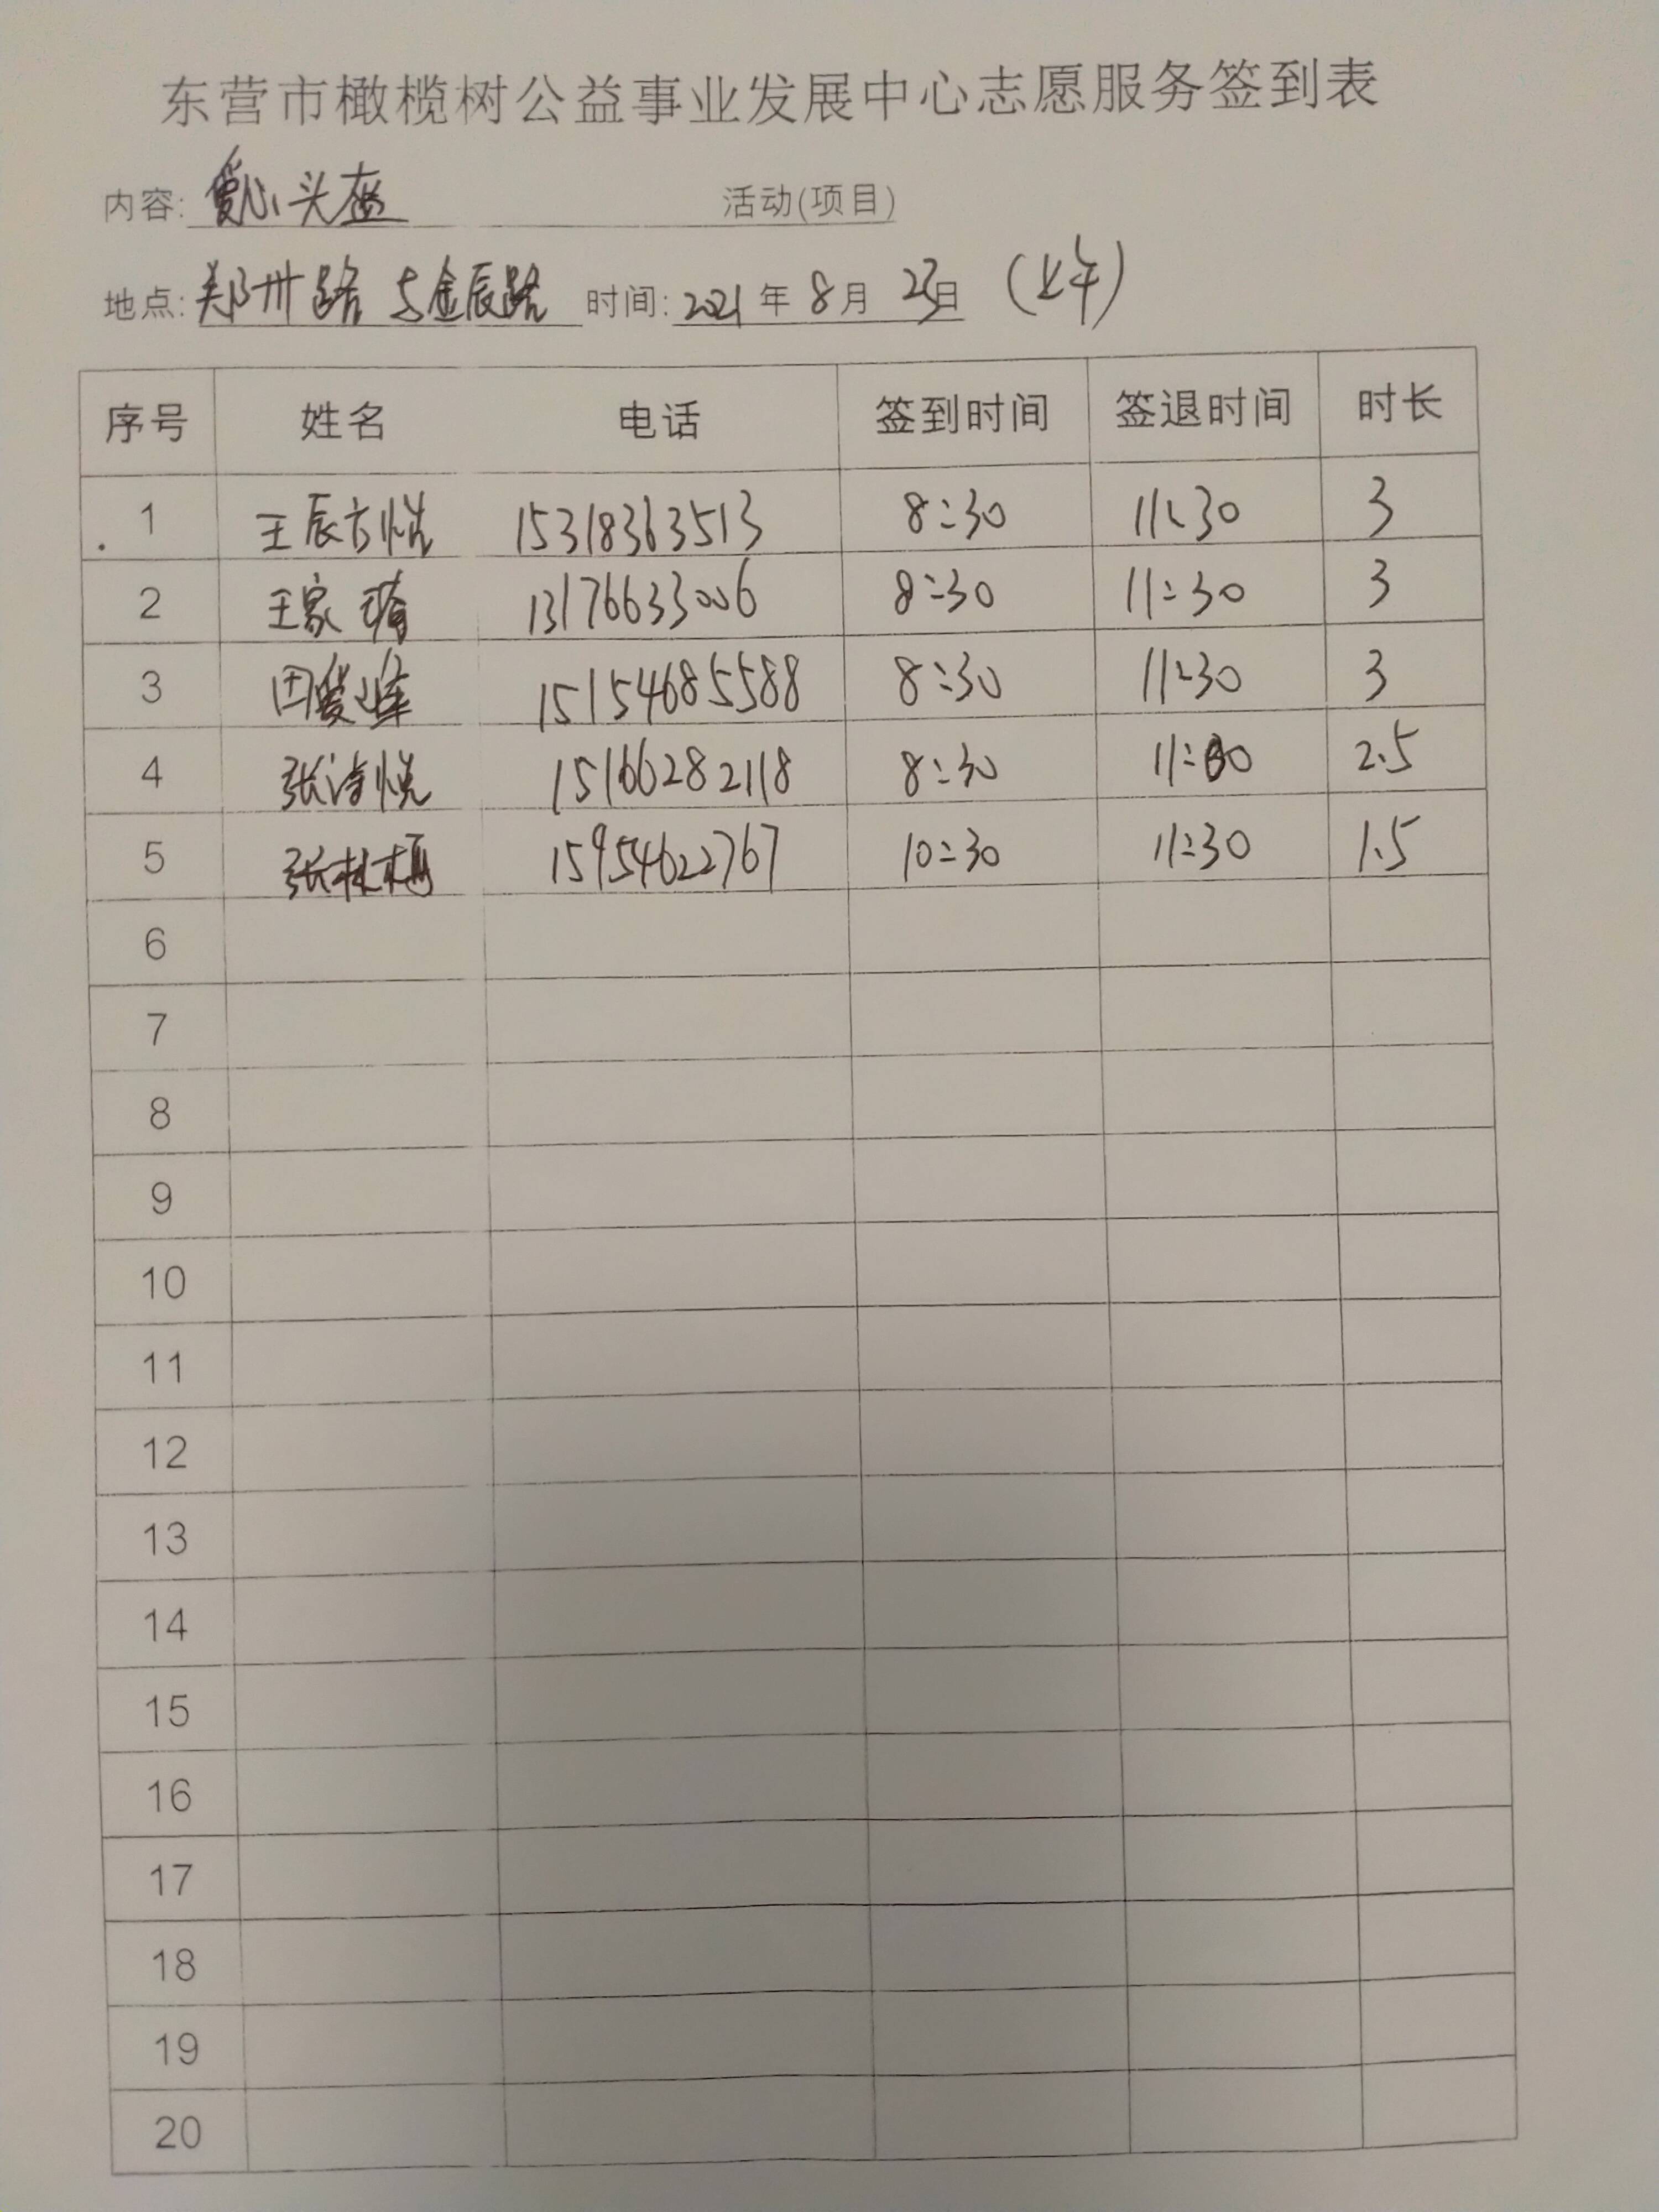 东营市橄榄树公益事业发展中心志愿服务签到表
内容: 爱心头盔 活动(项目)
地点: 郑州路与金辰路 时间: 2021年8月23日 (上午)
序号 姓名 电话 签到时间 签退时间 时长
1 王辰方悦 15318363513 8:30 11:30 3
2 王家琦 13176633006 8:30 11:30 3
3 田爱峰 15154685588 8:30 11:30 3
4 张涛悦 15166282118 8:30 11:00 2.5
5 张林梅 15954622767 10:30 11:30 1.5
6
7
8
9
10
11
12
13
14
15
16
17
18
19
20